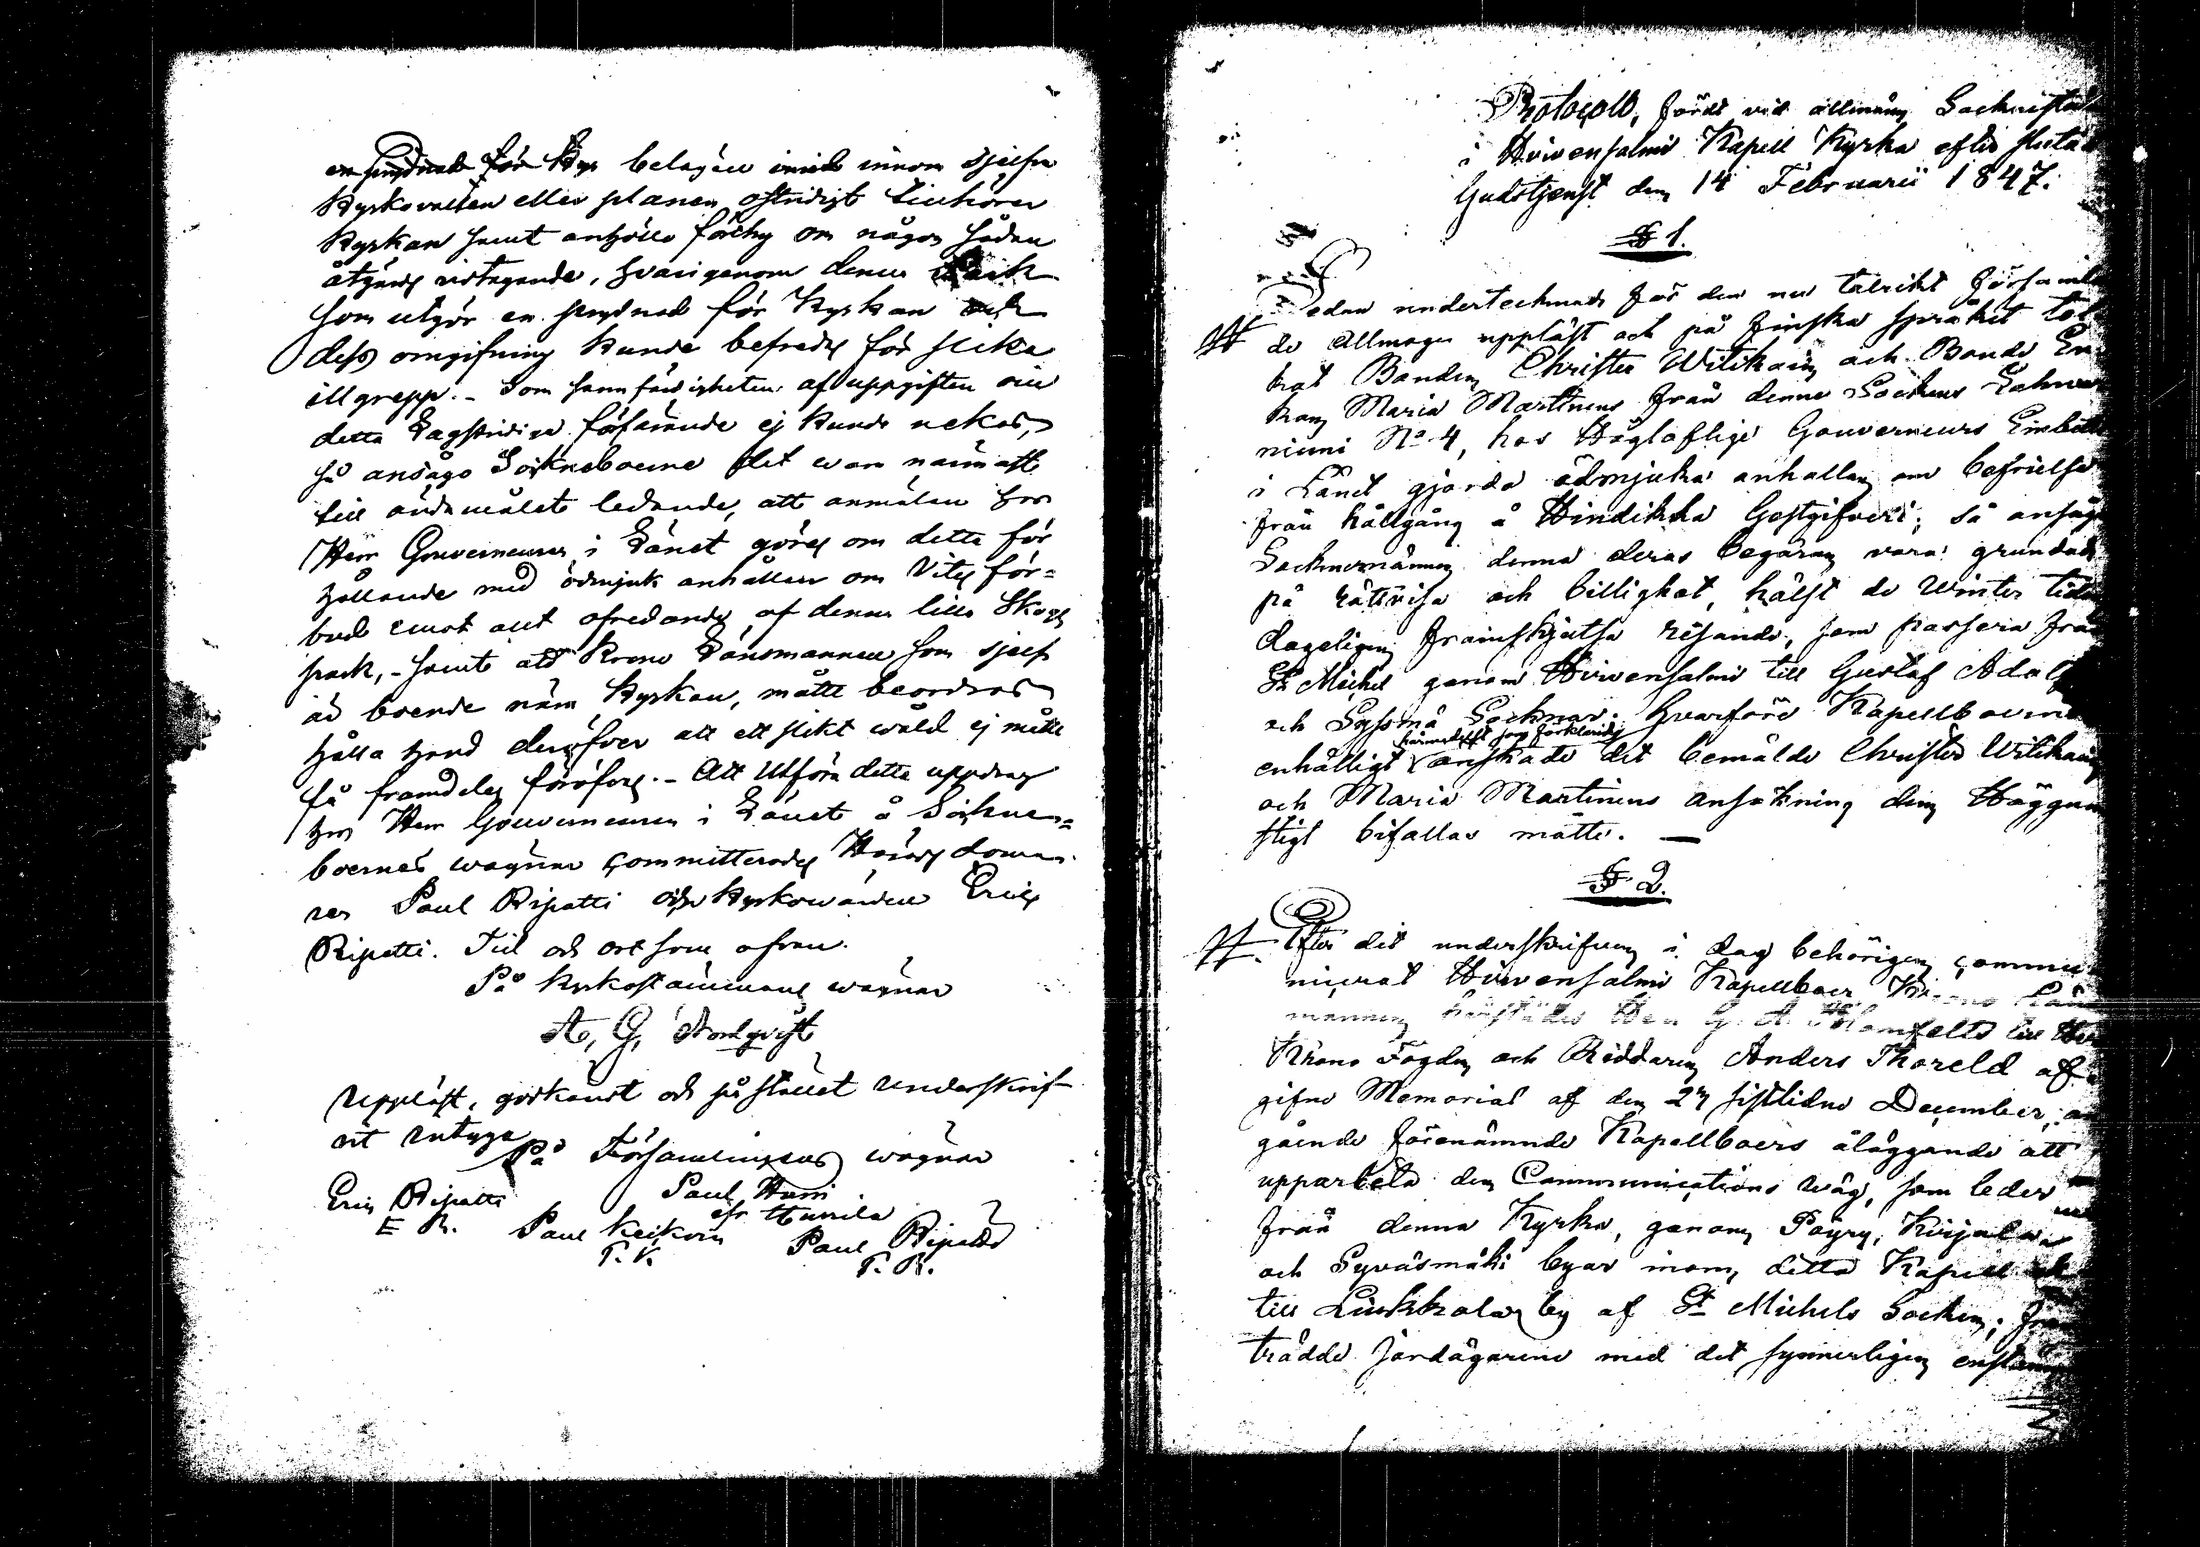 en prydnad för Kyr belägen inuti innom sjelfva
Kyrkovallen eller planen ostridigt tillhörer
Kyrkan samt anhöllo förthy om någon sådan
åtgärds vidtagande, hvarigenom denna Park
som utgör en prydnad för Kyrkan och
dess omgifning kunde befredas för slika
illgrepp. - Som sannfärdigheten af uppgiften om
detta Lagstridiga förfarande ej kunde nekas,
så ansågo Sockneboerne det vara närmast
till ändamålet ledande, att anmälan hos
Herr Gouverneuren i Länet göres om detta för
hållande med ödmjuk anhållan om Vites för-
bud emot allt ofredande af denna lilla Skogs
park, - samt att Krono Länsmannen som sjelf
är boende nära Kyrkan, måtte beordras
hålla hand deröfver att ett slikt våld ej måtte
få framdeles föröfvas. - Att Utföra detta uppdrag
hos Herr Gouverneuren i Länet å Sockne-
boernes vägnar committerades Häradsdoma-
ren Paul Ripatti och Kyrkovärden Eric
Ripatti. Tid och ort som ofvan.
På Kyrkostämmans vägnar
A. G. Nordqvist
Uppläst, godkändt och på stället underskrif-
vit intyga
På Församlingens vägnar
Eric Ripatti Paul Harri
E R. ifr Hurrila
Paul Keikoin Paul Ripatti
P. K. P. R.
Protocoll, fördt vid allmänn Sockne
i Hirvensalmi Kapell Kyrka efter slutad
Gudstjenst den 14 Februarii 1847.
§ 1.
Sedan undertecknad för den nu talrikt församla
de Allmoge uppläst och på finska språket tol
kat Bonden Christer Witikain och Bonde En
kan Maria Martinens från denna Sockens Lahna
niemi No 4, hos Höglofliga Gouverneurs Embetet
i Länet gjorda ödmjuka anhållan om befrielse
från hållgång å Hindikka Gestgifveri; så ansågo
Sockneännen denna deras begäran vara grundad
på rättvisa och billighet, hälst de Winter tiden
dageligen framskjutsa resande, som passera från
St Michel genom Hirvensalmi till Gustaf Adolf
och Sysmä Socknar; hvarföre Kapellboerne
härmedelst som förklarades
enhälligt önskade det bemälde Christer Witikains
och Maria Martinens ansökning den Höggun
stigt bifallas måtte. —
§ 2.
Efter det underskrifven i dag behörigen commu
nicerat Hirvensalmi Kapellboer Krono Läns
mannen härstädes Herr G. A. Blomfelts till Herr
Krono Fogden och Riddaren Anders Thoreld af
gifne Memorial af den 27 sistlidne December, an
gående förenämnde Kapellboers åläggande att
upparbeta den Communications väg, som leder
från denna Kyrka, genom Pöyry, Kirjala
och Syväsmäki byar inom detta Kapell
till Liukkola by af St Michels Socken; fram
trädde jordägarene med det synnerligen enständiga